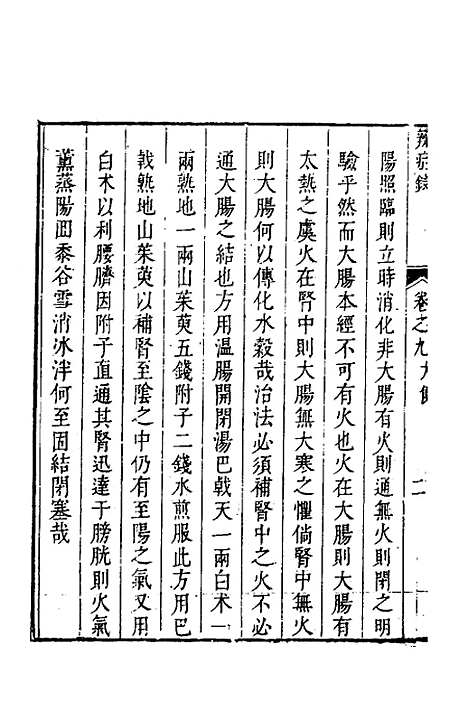 辨症錄
卷之九大便
二
陽照臨則立時消化非大腸有火則通無火則閉之明
驗乎然而大腸本經不可有火也火在大腸則大腸有
太熱之虞火在腎中則大腸無大寒之懼倘腎中無火
則大腸何以傳化水穀哉治法必須補腎中之火不必
通大腸之結也方用溫腸開閉湯巴戟天一兩白术一
兩熟地一兩山茱萸五錢附子二錢水煎服此方用巴
戟熟地山茱萸以補腎至陰之中仍有至陽之氣又用
白术以利腰臍因附子直通其腎迅達于膀胱則火氣
薰蒸陽回黍谷雪消冰泮何至固結閉塞哉